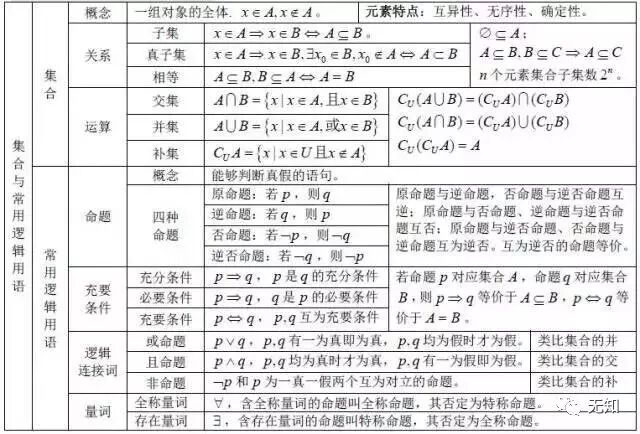 集合与常用逻辑用语
集合
概念
一组对象的全体. x∈A, x∉A 。
元素特点：互异性、无序性、确定性。
关系
子集
x∈A⇒x∈B⇔A⊆B 。
真子集
x∈A⇒x∈B,∃x₀∈B,x₀∉A⇔A⊂B
相等
A⊆B,B⊆A⇔A=B
∅⊆A；
A⊆B,B⊆C⇒A⊆C
n个元素集合子集数2ⁿ。
运算
交集
A∩B={x|x∈A,且x∈B}
并集
A∪B={x|x∈A,或x∈B}
补集
C_U A={x|x∈U且x∉A}
C_U(A∪B)=(C_U A)∩(C_U B)
C_U(A∩B)=(C_U A)∪(C_U B)
C_U(C_U A)=A
常用逻辑用语
命题
概念
能够判断真假的语句。
四种
命题
原命题：若p，则q
逆命题：若q，则p
否命题：若¬p，则¬q
逆否命题：若¬q，则¬p
原命题与逆命题，否命题与逆否命题互
逆；原命题与否命题、逆命题与逆否命
题互否；原命题与逆否命题、否命题与
逆命题互为逆否。互为逆否的命题等价。
充要
条件
充分条件
p⇒q，p是q的充分条件
必要条件
p⇒q，q是p的必要条件
充要条件
p⇔q，p,q互为充要条件
若命题p对应集合A，命题q对应集合
B，则p⇒q等价于A⊆B，p⇔q等
价于A=B。
逻辑
连接词
或命题
p∨q，p,q有一为真即为真，p,q均为假时才为假。
类比集合的并
且命题
p∧q，p,q均为真时才为真，p,q有一为假即为假。
类比集合的交
非命题
¬p和p为一真一假两个互为对立的命题。
类比集合的补
量词
全称量词
∀，含全称量词的命题叫全称命题，其否定为特称命题。
存在量词
∃，含存在量词的命题叫特称命题，其否定为全称命题。
无知